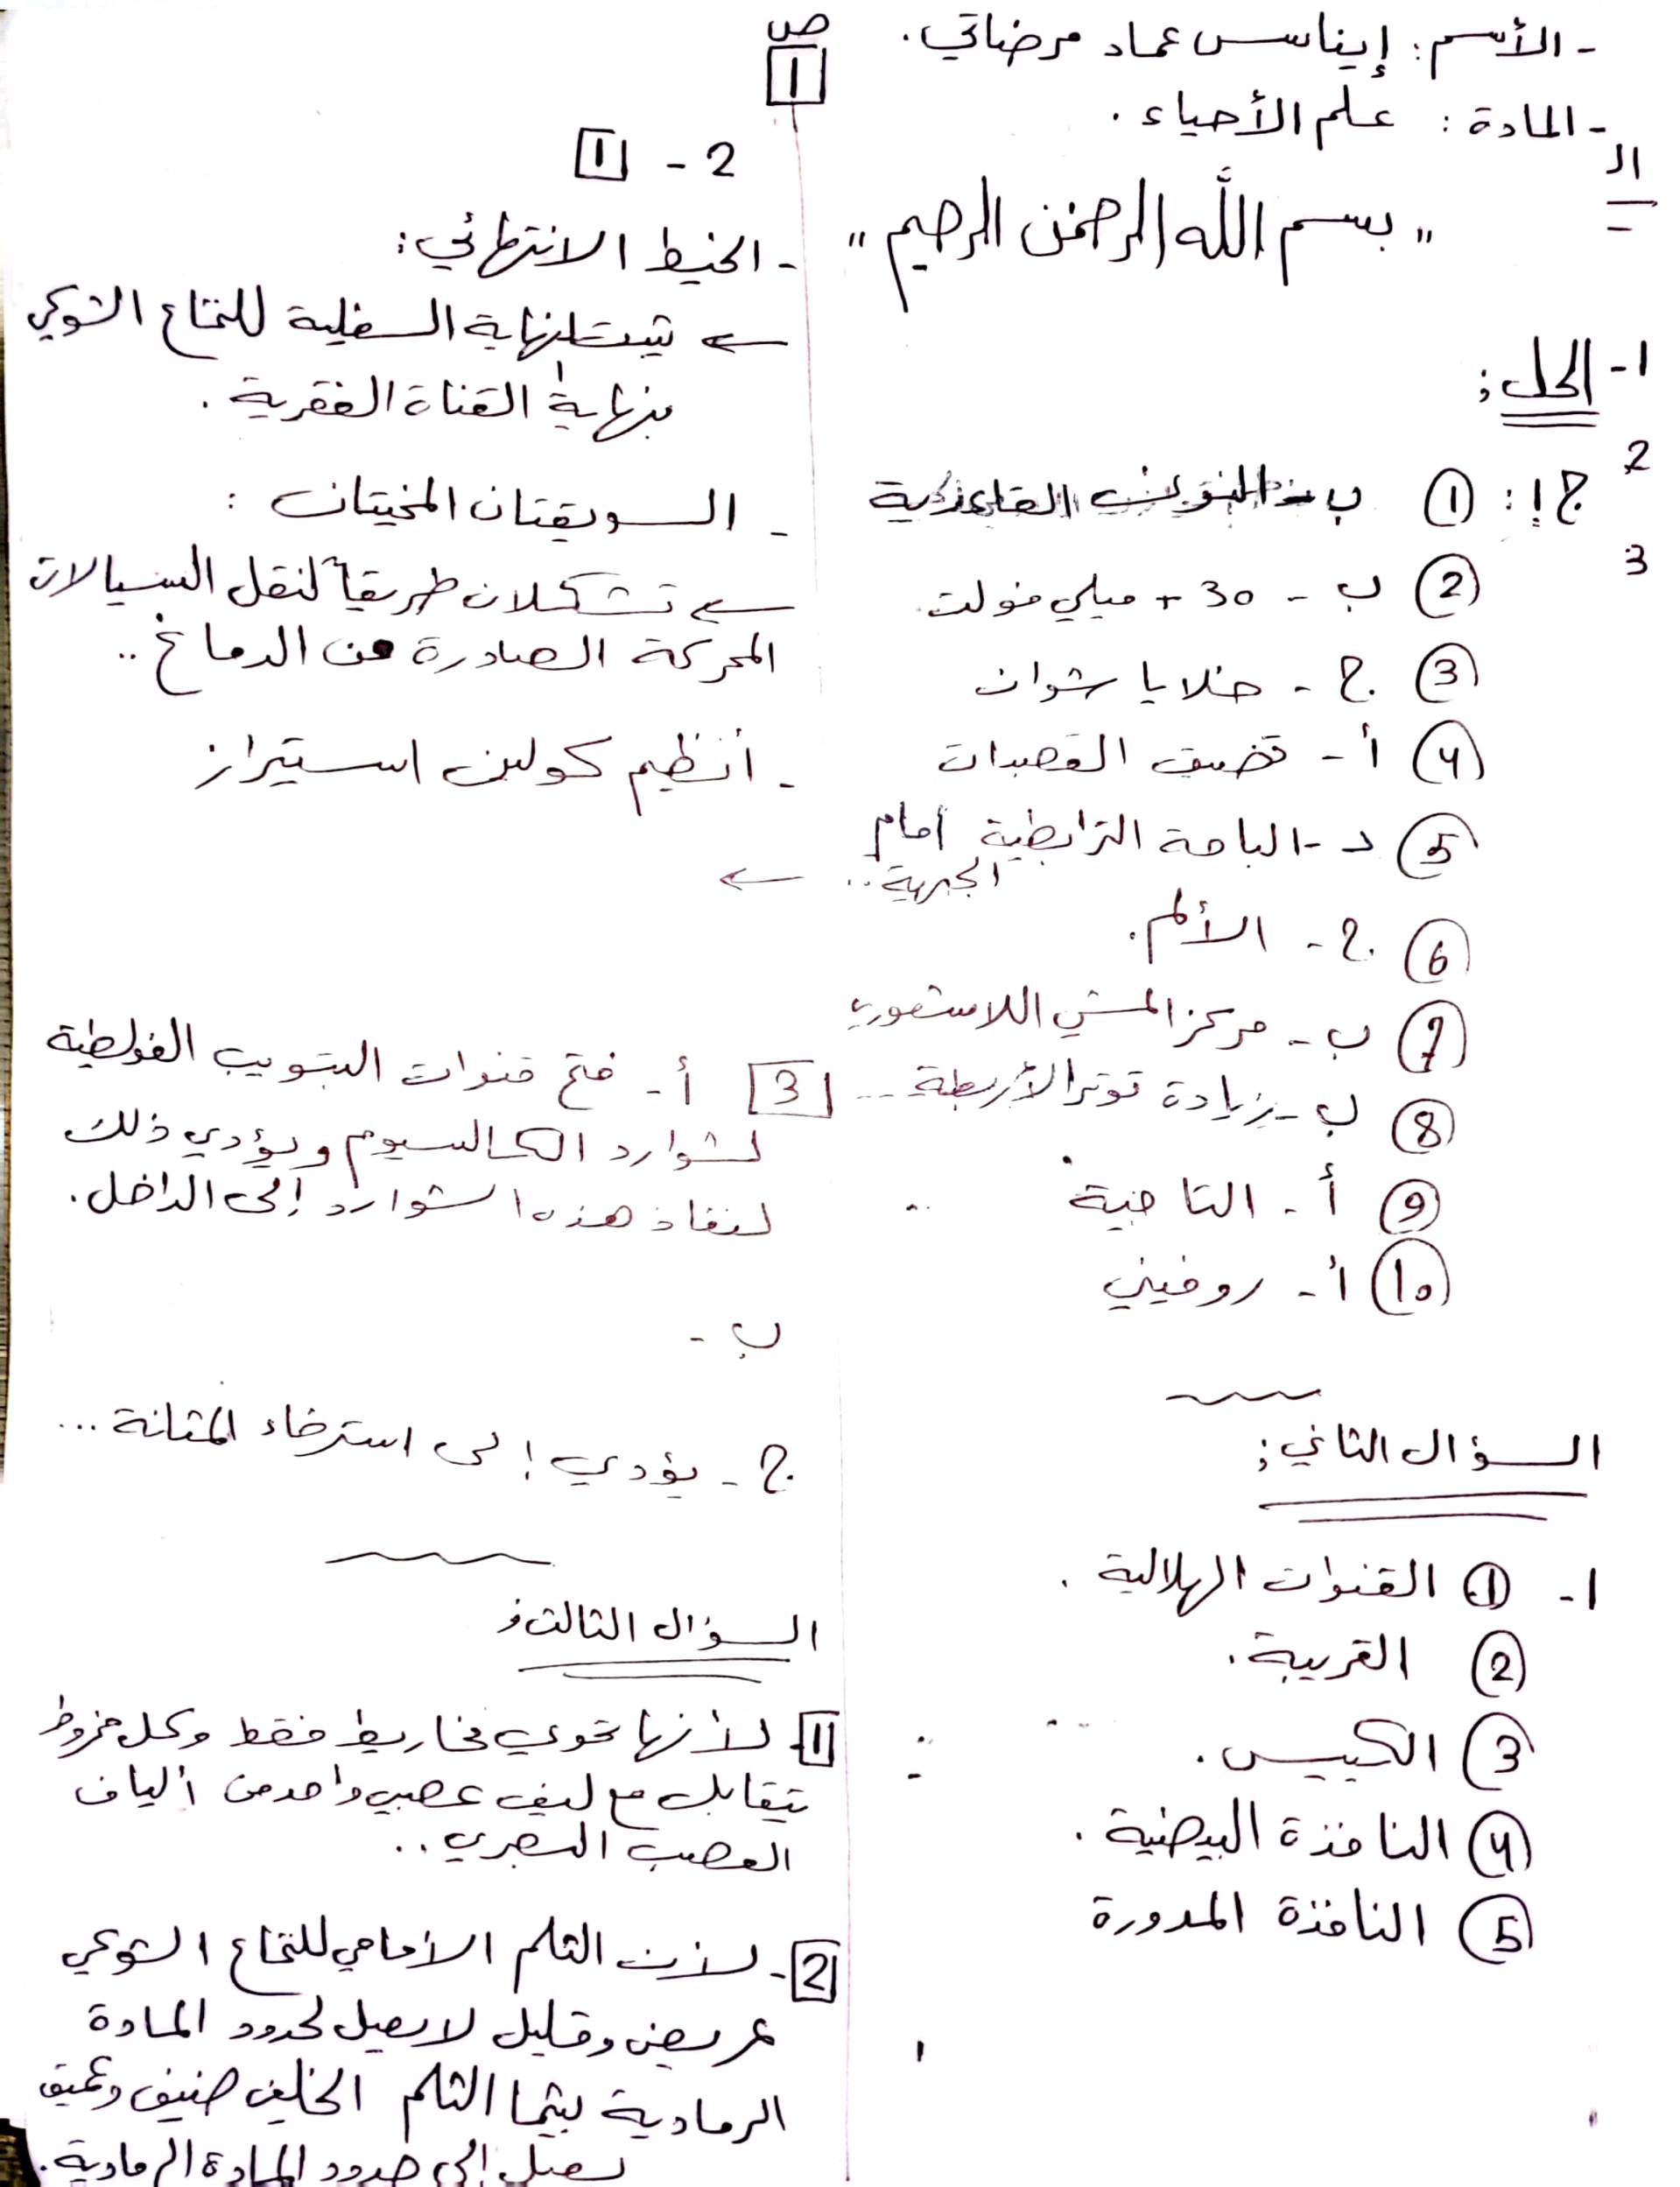 ص
1
- الأسم: إيناس عماد مرضاتي.
- المادة: علم الأحياء.
الـ
" بسم الله الرحمن الرحيم "
1- الحل:
2
3
ج1: ① ب - النوى القاعدية
② ب - 30 + ميلي فولت
③ ج - خلايا شوان
④ أ - تضيق القصبات
⑤ د - الباحة الترابطية أمام
الجبهية..
⑥ ج - الألم.
⑦ ب - مركز المشي اللاشعوري
⑧ ب - زيادة توتر الأربطة ...
⑨ أ - التاجية
⑩ أ - روفيني
السؤال الثاني:
1- ① القنوات الهلالية.
② القريبة.
③ الكييس.
④ النافذة البيضية.
⑤ النافذة المدورة
2 - 1
- الخيط الانتهائي:
← تثبت النهاية السفلية للنخاع الشوكي
بنهاية القناة الفقرية.
- السويقتان المخيتان:
← تشكلان طريقاً لنقل السيالات
المحركة الصادرة من الدماغ..
- أنظيم كولين استيراز
←
3 أ - فتح قنوات التبويب الفولطية
لشوارد الكالسيوم ويؤدي ذلك
لنفاذ هذه الشوارد إلى الداخل.
ب -
ج - يؤدي إلى استرخاء المثانة ...
السؤال الثالث:
1- لأنها تحوي مخاريط فقط وكل مخروط
يتقابل مع ليف عصبي واحد من ألياف
العصب البصري..
2- لأن الثلم الأمامي للنخاع الشوكي
عريض وقليل لا يصل لحدود المادة
الرمادية بينما الثلم الخلفي ضيق وعميق
يصل إلى حدود المادة الرمادية.